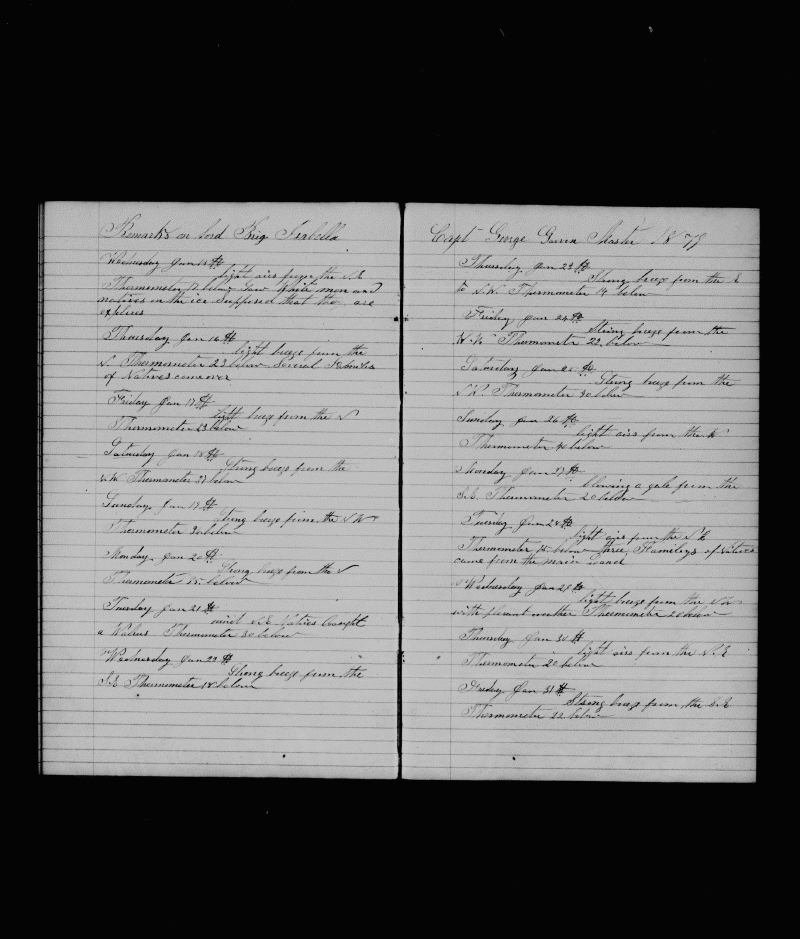 Remarks on bord Brig Isabella
Wednesday Jan 15th
light airs from the N.E
Thermometer 12 below four White men and
natives on the ice Supposed that the are
Thursday Jan 16th
light breeze from the
N. Thermometer 23 below Several
of Natives come over
Friday Jan 17th
light breeze from the N
Thermometer 23 below
Saturday Jan 18th
Strong breeze from the
N.W Thermometer below
Sunday Jan 19th
Strong breeze from the N W
Thermometer 30 below
Monday Jan 20th
Strong breeze from the N
Thermometer 25 below
Tuesday Jan 21th
wind N.E Natives brought
a Walrus Thermometer 30 below
Wednesday Jan 22th
Strong breeze from the
S.E Thermometer 18 below
Capt George Master 1879
Thursday Jan 23th
Strong breeze from the S
to S.W. Thermometer 14 below
Friday Jan 24th
Strong breeze from the
N.W Thermometer 22 below
Saturday Jan 25th
Strong breeze from the
N W. Thermometer 30 below
Sunday Jan 26th
light airs from the W
Thermometer 30 below
Monday Jan 27th
blowing a gale from the
S.E. Thermometer 20 below
Tuesday Jan 28th
light airs from the N E
Thermometer 25 below three Famileys of Natives
came from the main Land
Wednesday Jan 29th
light breeze from the N.W
with plesent weather Thermometer 20 below
Thursday Jan 30th
light airs from the N.E
Thermometer 20 below
Friday Jan 31th
Strong breeze from the S.E
Thermometer 22 below